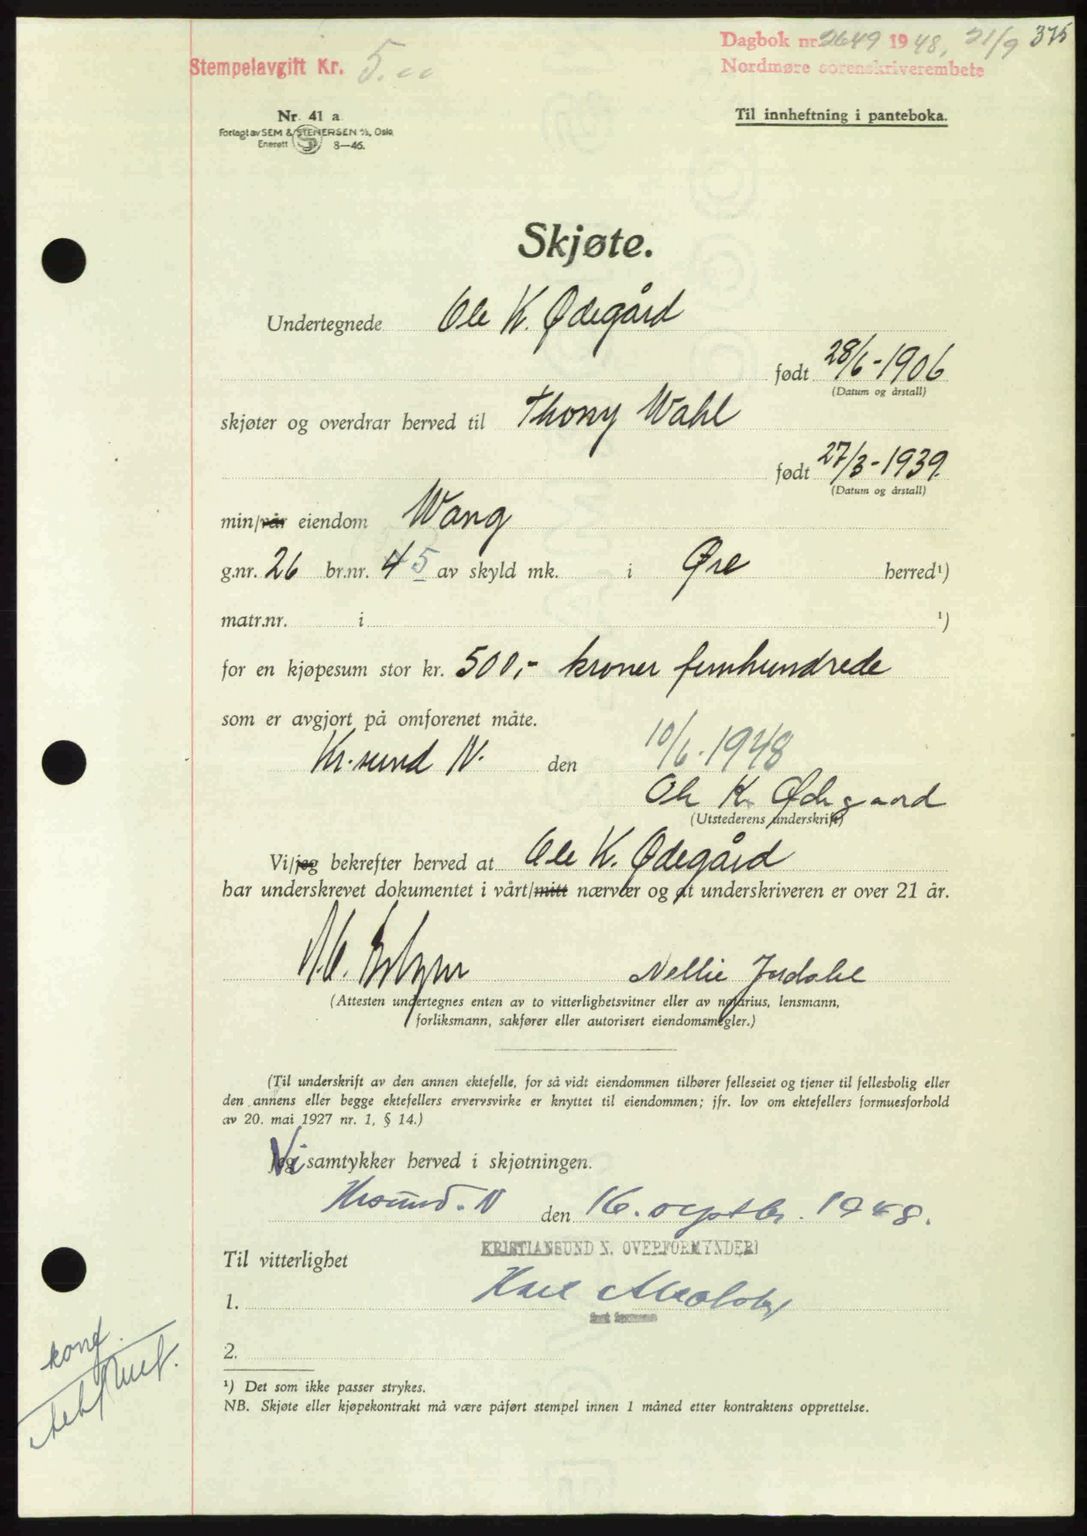 Dagbok nr. 2649 1948, 21/9 375
Nordmøre sorenskriverembete
Stempelavgift Kr. 5.00
Nr. 41 a
Forlagt av SEM & STENERSEN A/S, Oslo
Enerett 8—46.
Til innheftning i panteboka.
Skjøte.
Undertegnede Ole K. Ødegård
født 28/6-1906
(Datum og årstall)
skjøter og overdrar herved til Thony Wahl
født 27/3-1939.
(Datum og årstall)
min/vår eiendom Wang
g.nr. 26 br.nr. 4 5 av skyld mk. i Øre herred¹)
matr.nr. i ¹)
for en kjøpesum stor kr. 500,- kroner femhundrede
som er avgjort på omforenet måte.
Kr.sund N. den 10/6-1948
Ole K. Ødegaard
(Utstederens underskrift)
Vi/jeg bekrefter herved at Ole K. Ødegård
har underskrevet dokumentet i vårt/mitt nærvær og at underskriveren er over 21 år.
Nellie
(Attesten undertegnes enten av to vitterlighetsvitner eller av notarius, lensmann,
forliksmann, sakfører eller autorisert eiendomsmegler.)
(Til underskrift av den annen ektefelle, for så vidt eiendommen tilhører felleseiet og tjener til fellesbolig eller
den annens eller begge ektefellers ervervsvirke er knyttet til eiendommen; jfr. lov om ektefellers formuesforhold
av 20. mai 1927 nr. 1, § 14.)
Vi samtykker herved i skjøtningen.
Krsund. N den 16. septbr. 1948.
KRISTIANSUND N. OVERFORMYNDERI
Til vitterlighet
1.
2.
¹) Det som ikke passer strykes.
NB. Skjøte eller kjøpekontrakt må være påført stempel innen 1 måned etter kontraktens opprettelse.
konf.